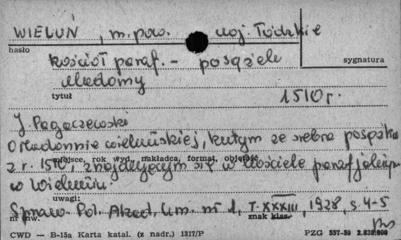 WIELUŃ, m. pow. woj. Łódzkie
hasło
kościół paraf. - posągiele
sygnatura
Madonny
tytuł
1510 r.
J. Pagaczewski
O Madonnie wieluńskiej, kutym ze srebra posążku
z r. 1510, znajdującym się w kościele parafjalnym
miejsce, rok wyd., nakładca, format, objętość
w Wieluniu.
uwagi:
Spraw. Pol. Akad. Um. nr 1, T. XXXIII, 1928, s. 4-5
nr inw.
znak klas.
CWD — B-15a Karta katal. (z nadr.) 1317/P
PZG 557-59